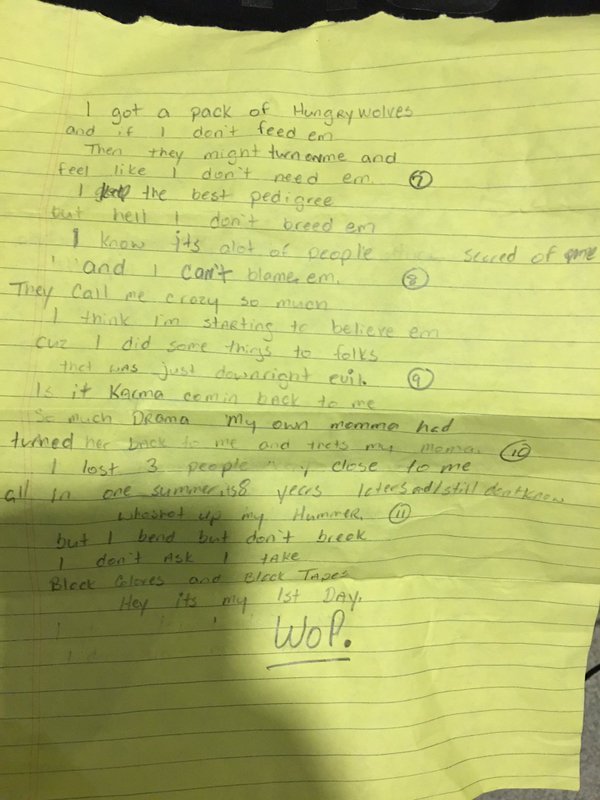 I got a pack of Hungry wolves
and if I don't feed em
Then they might turn on me and
feel like I don't need em. 7
I the best pedigree
but hell I don't breed em
I know its alot of people scared of me
and I can't blame em. 8
They call me crazy so much
I think I'm starting to believe em
cuz I did some things to folks
that was just downright evil. 9
Is it Karma comin back to me
So much Drama my own momma had
turned her back to me and thats my moma. 10
I lost 3 people very close to me
all in one summer. its 8 years later and I still dont know
who shot up my Hummer. 11
but I bend but don't break
I don't Ask I take
Black Gloves and Black Tapes
Hey its my 1st Day.
WOP.